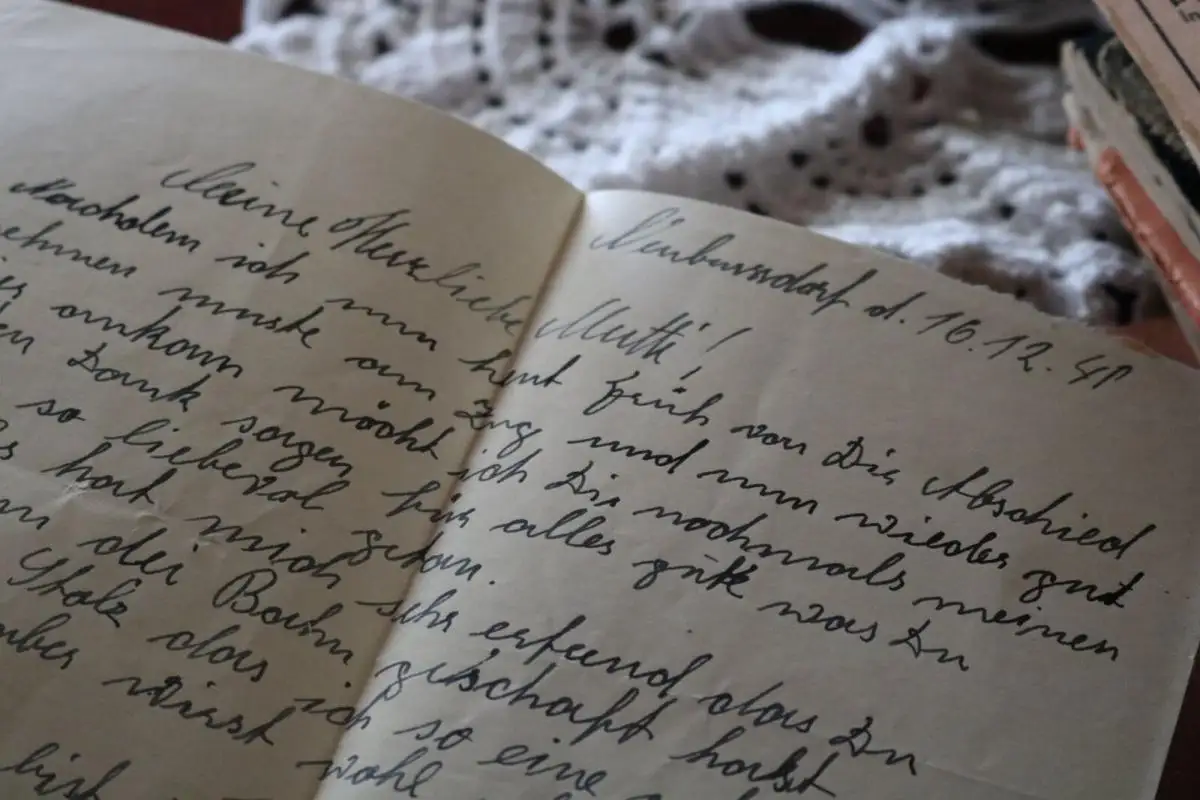 Neubursdorf d. 16.12. 41
Meine Herzliebe Mutti!
Nachdem ich nun heut früh von Dir Abschied
nehmen muste am Zug und nun wieder gut
ankam möcht ich Dir nochmals meinen
Dank sagen für alles gute was Du
so liebevol getan.
hat mich sehr erfeud das Du
dei Bahn geschaft habst
Stolz das ich so eine
aber wirst wohl
bist